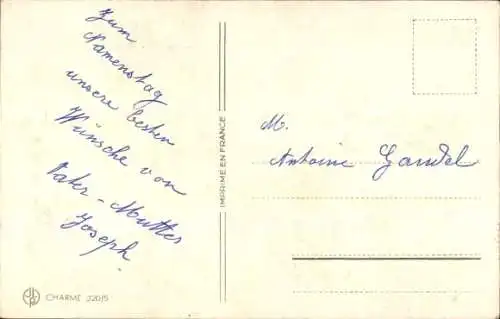 Zum
Namenstag
unsere besten
Wünsche von
Vater - Mutter
Joseph.
IMPRIMÉ EN FRANCE
M.
Antoine Gandel
CHARME 320/5